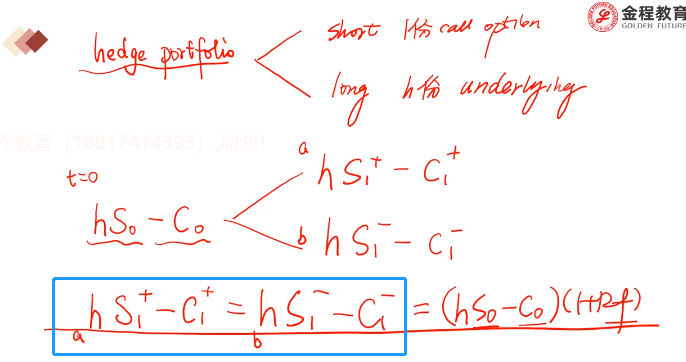 金程教育
GOLDEN FUTURE
hedge portfolio
short 1份 call option
long h份 underlying
程教育（18817414393）,加油!
t=0
a hS₁⁺ - C₁⁺
hS₀ - C₀
b hS₁⁻ - C₁⁻
hS₁⁺ - C₁⁺ = hS₁⁻ - C₁⁻ = (hS₀ - C₀)(1+Rf)
a b